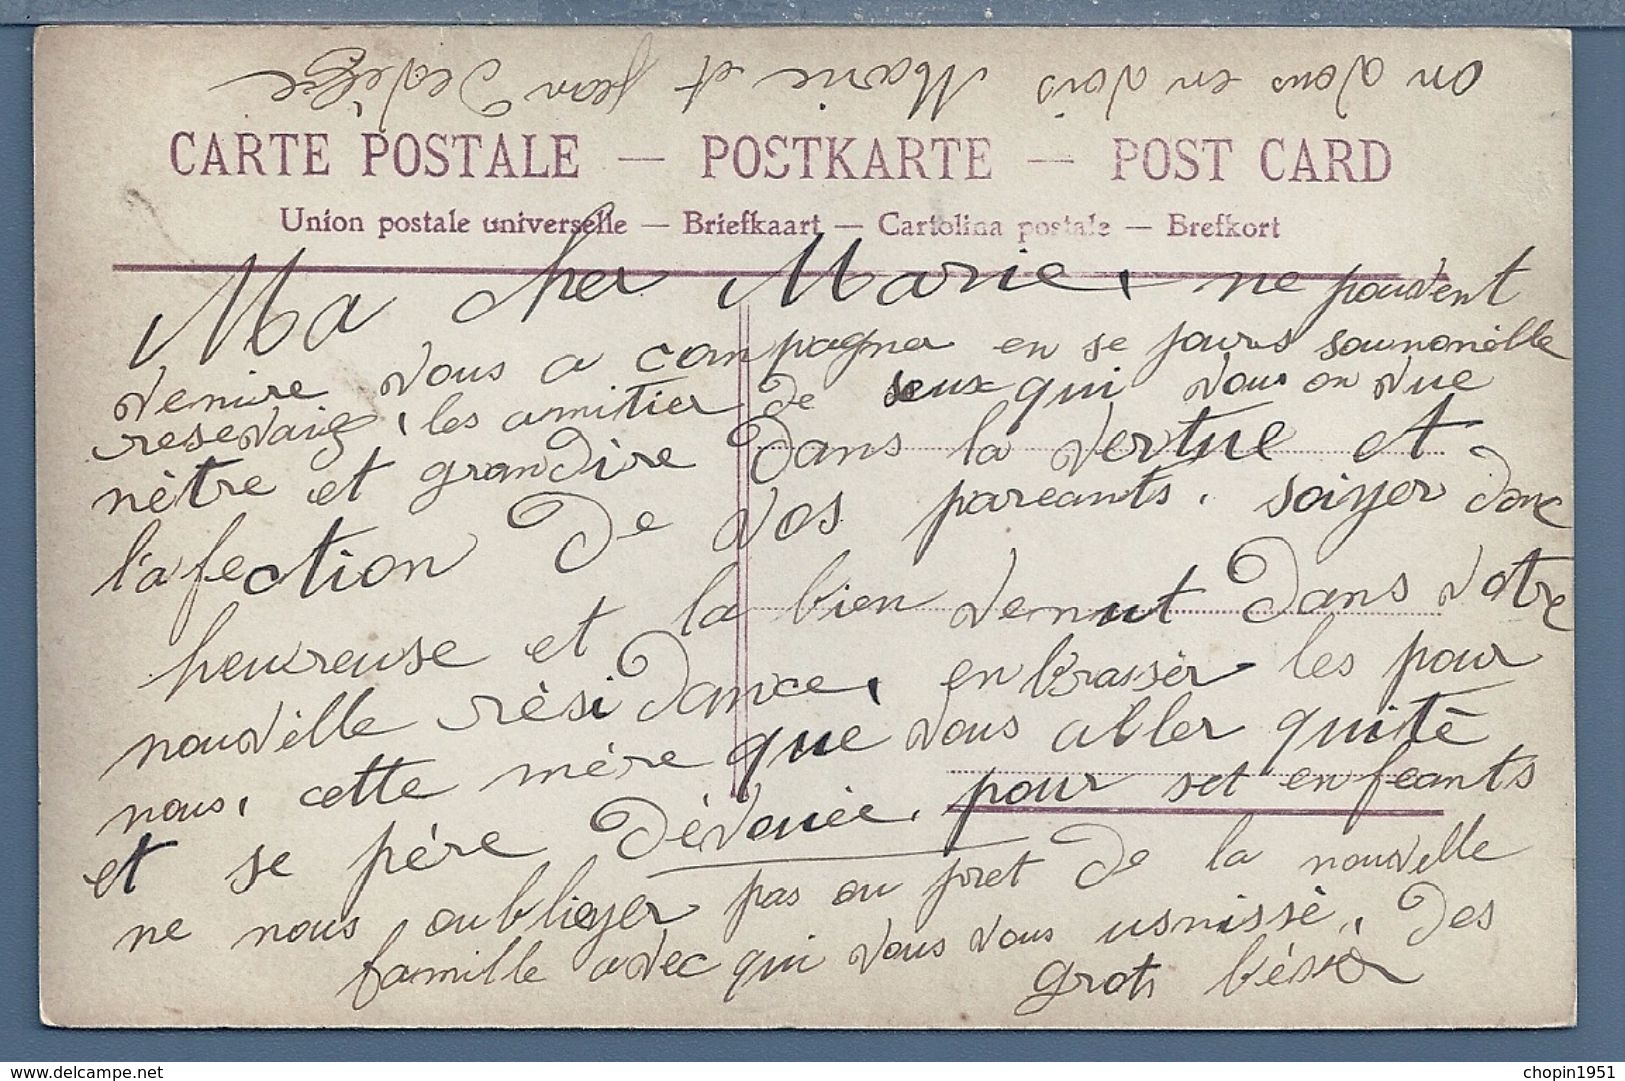 CARTE POSTALE — POSTKARTE — POST CARD
Union postale universelle — Briefkaart — Cartolina postale — Brefkort
Ma cher Marie, ne pouvent
venire vous a compagner en se jours sounonèlle
resevaig, les amitier de seux qui vous on vue
nètre et grandire dans la vertue et
l'afection de vos pareants. soiyer donc
heureuse et la bien venut dans votre
nouvèlle rèsidance, enbrassèr les pour
nous, cette mère què vous aller quitè
et se père dèvouèe, pour set enfeants
ne nous oublieyer pas ou pret de la nouvelle
famille avec qui vous vous usnissè, des
grots bèsser
on dous en dois Marie et Jean
www.delcampe.net
chopin1951